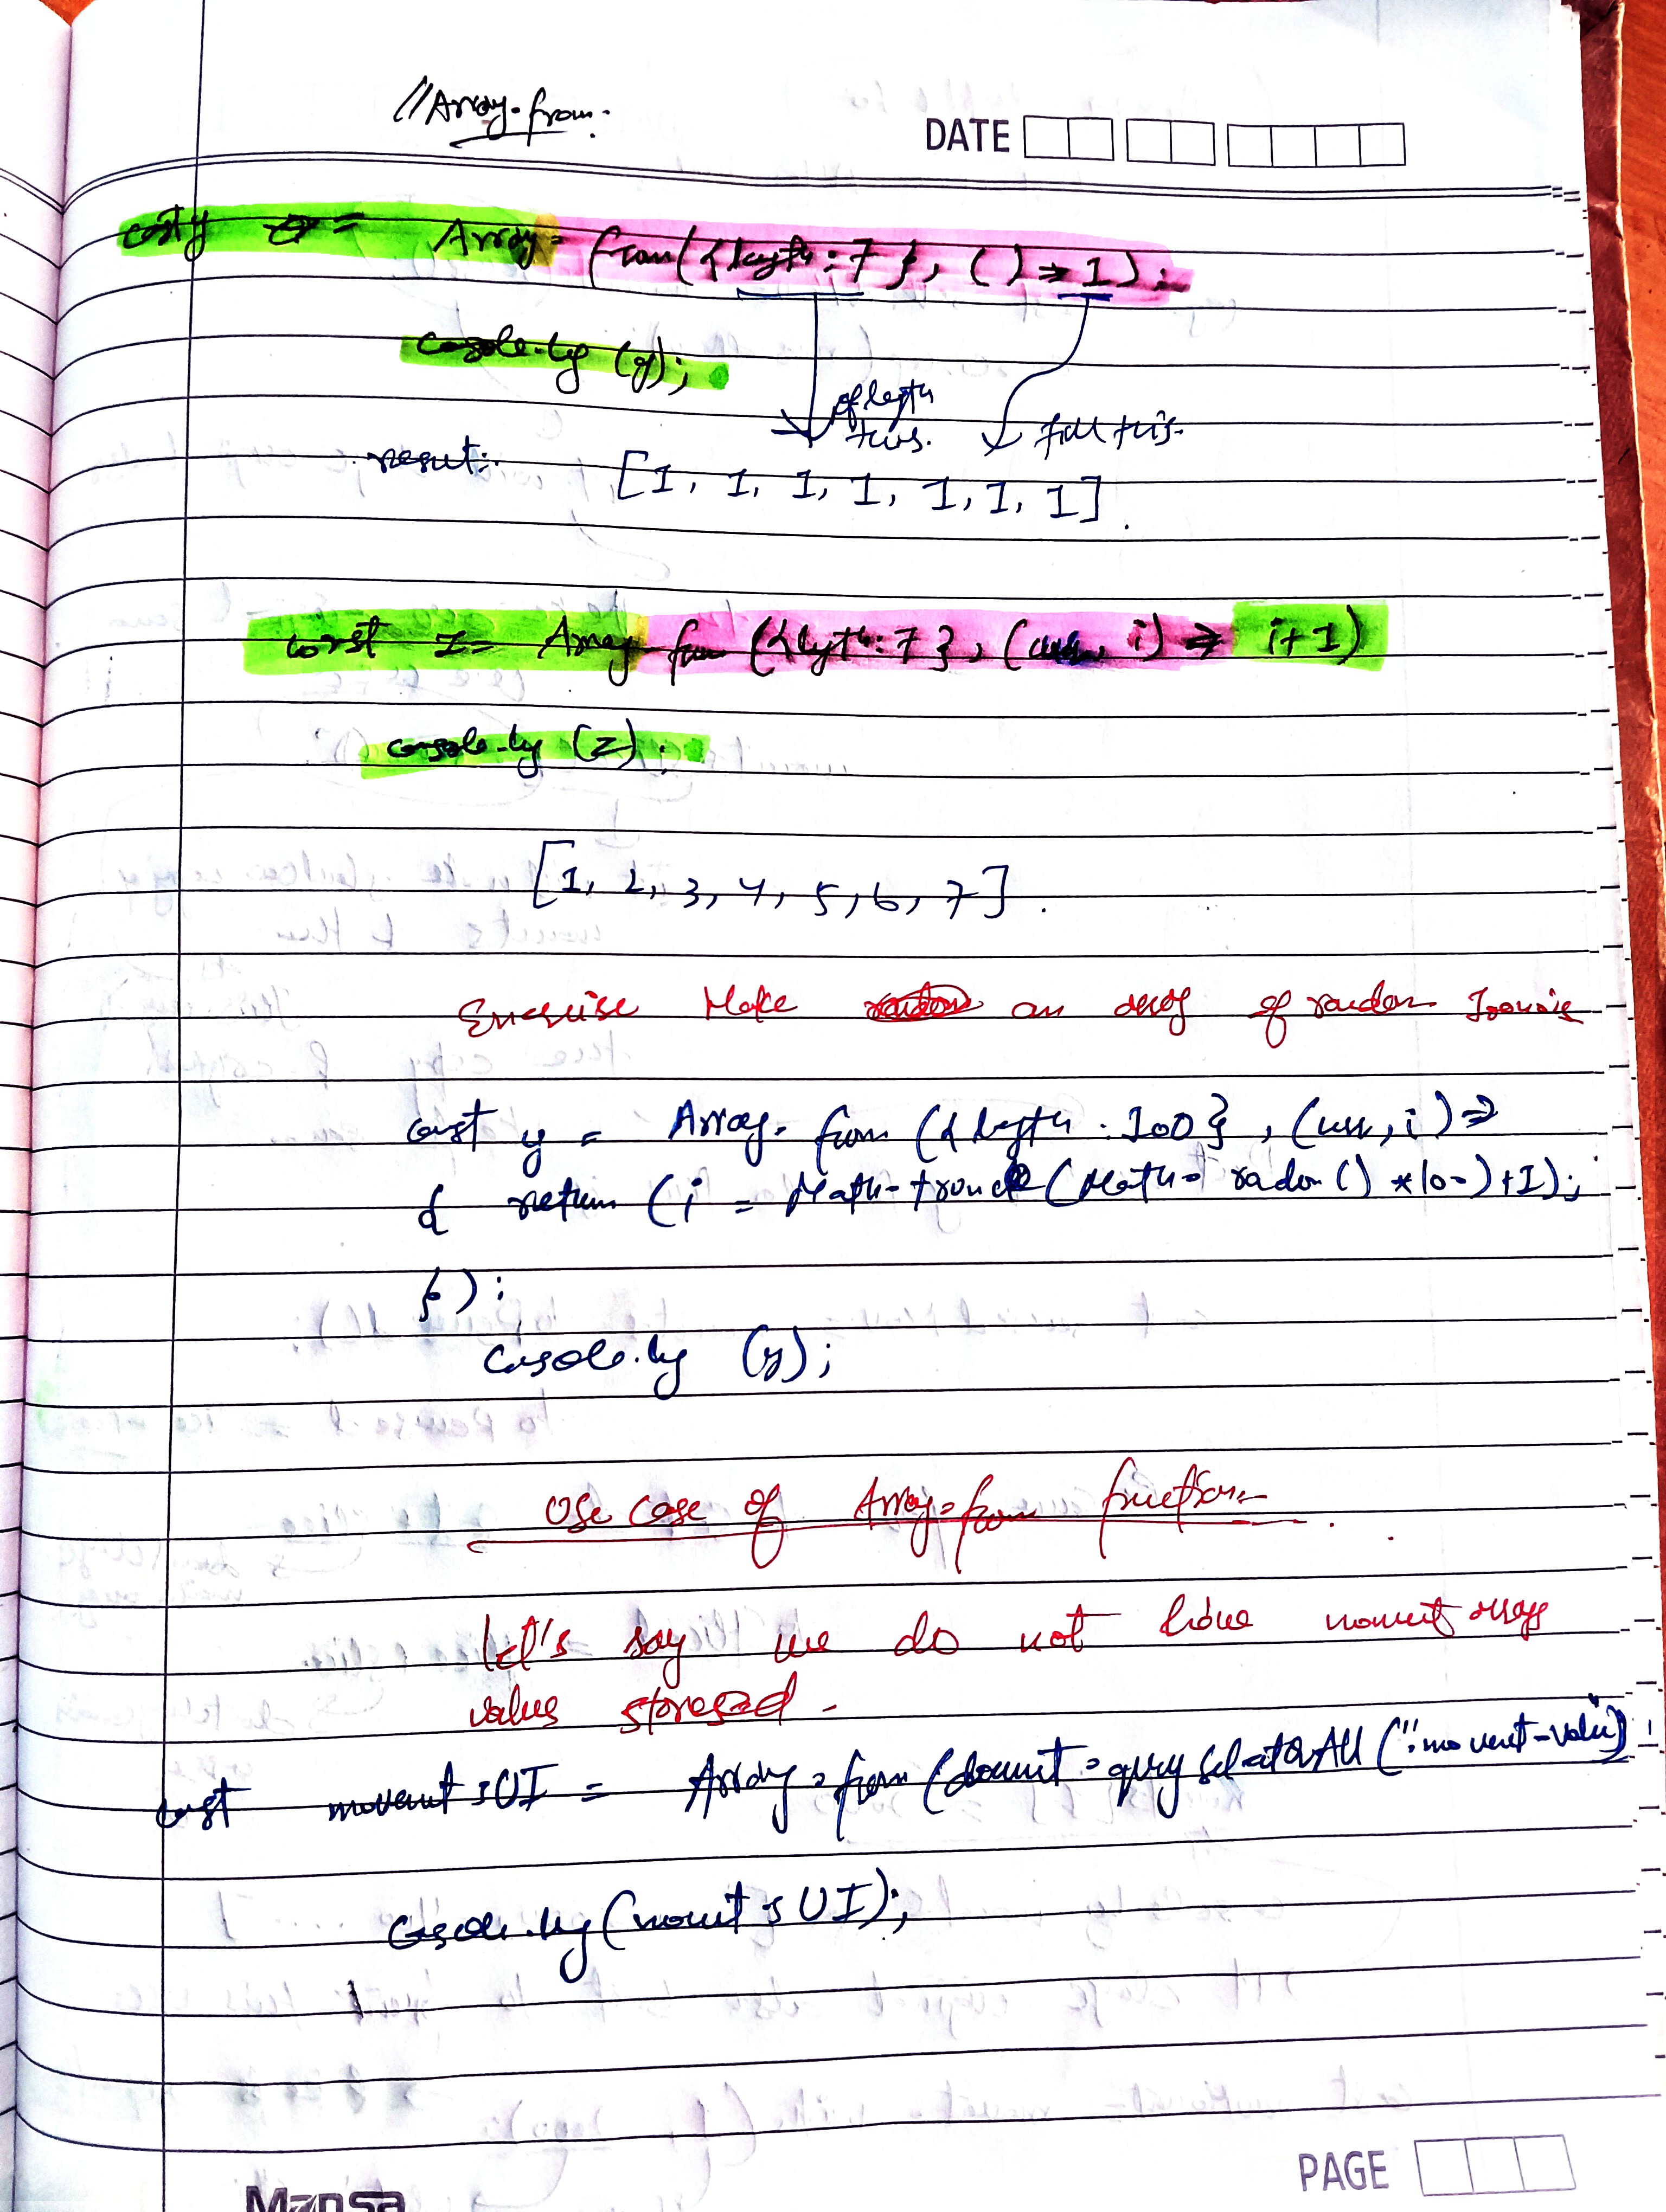 //Array.from.
DATE
const y = Array.from({length:7}, () => 1);
console.log(y);
of length
this. fill this.
result: [1, 1, 1, 1, 1, 1, 1].
const z = Array.from({length:7}, (curr, i) => i+1)
console.log(z);
[1, 2, 3, 4, 5, 6, 7].
Exercise Make an array of random
const y = Array.from({length:100}, (curr, i) =>
{ return (i = Math.trunc(Math.random() *100)+1);
});
console.log(y);
Use case of Array.from function.
Let's say we do not have movement array
values stored.
const movementsUI = Array.from(document.querySelectorAll(".movement-value
console.log(movementsUI);
PAGE
Mansa